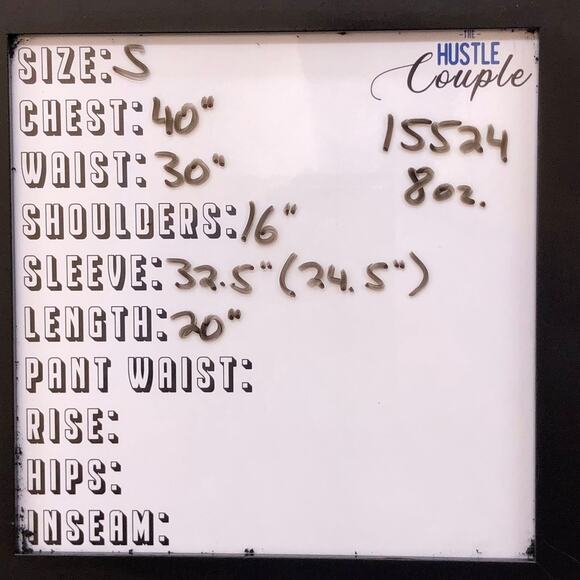 SIZE: S
-THE-
HUSTLE
Couple
CHEST: 40"
15524
WAIST: 30"
8oz.
SHOULDERS: 16"
SLEEVE: 32.5" (24.5")
LENGTH: 20"
PANT WAIST:
RISE:
HIPS:
INSEAM: